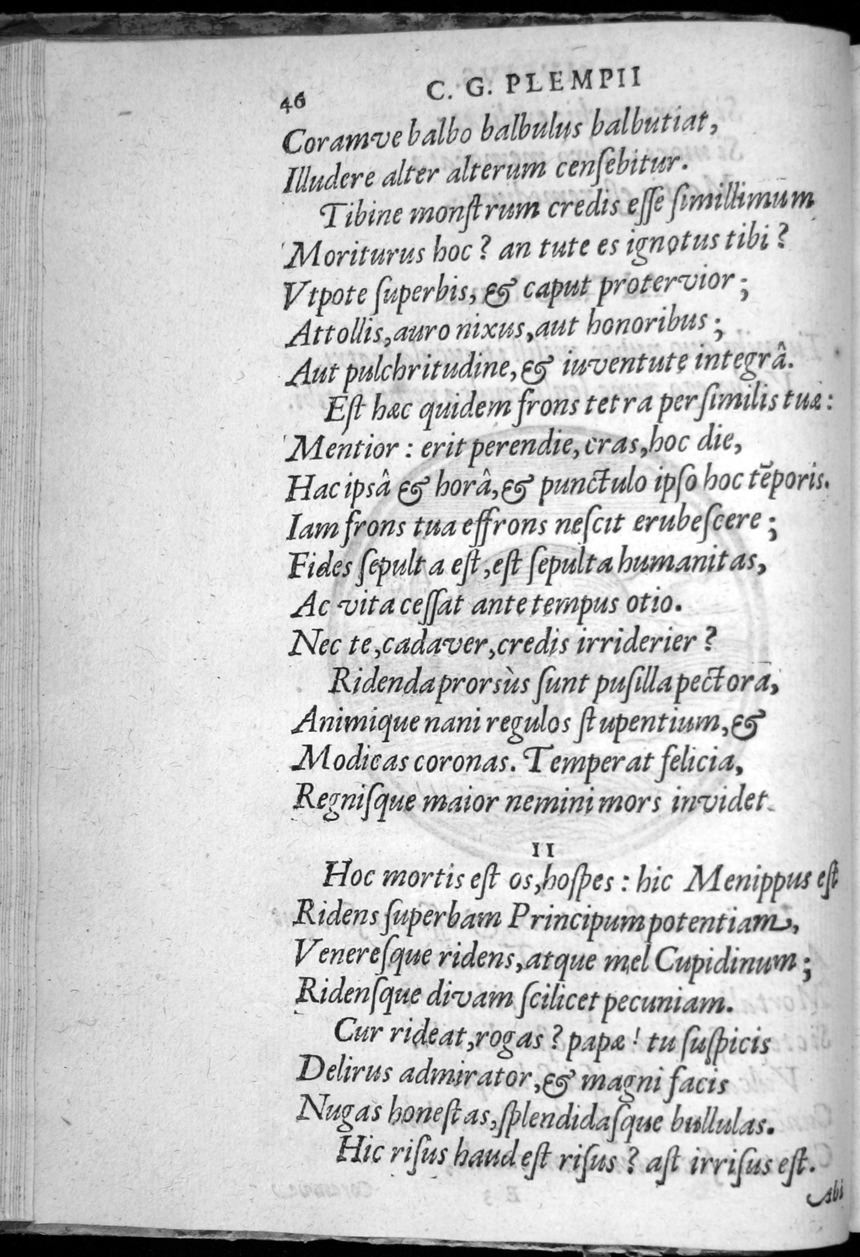 46 C. G. PLEMPII
Coramve balbo balbulus balbutiat,
Illudere alter alterum censebitur.
Tibine monstrum credis esse simillimum
Moriturus hoc? an tute es ignotus tibi?
Vtpote superbis, & caput protervior;
Attollis, auro nixus, aut honoribus;
Aut pulchritudine, & iuventute integrâ.
Est hæc quidem frons tetra persimilis tuæ:
Mentior: erit perendie, cras, hoc die,
Hac ipsâ & horâ, & punctulo ipso hoc tēporis.
Iam frons tua effrons nescit erubescere;
Fides sepulta est, est sepulta humanitas,
Ac vita cessat ante tempus otio.
Nec te, cadaver, credis irriderier?
Ridenda prorsùs sunt pusilla pectora,
Animique nani regulos stupentium, &
Modicas coronas. Temperat felicia,
Regnisque maior nemini mors invidet.
II
Hoc mortis est os, hospes: hic Menippus est
Ridens superbam Principum potentiam,
Veneresque ridens, atque mel Cupidinum;
Ridensque divam scilicet pecuniam.
Cur rideat, rogas? papæ! tu suspicis
Delirus admirator, & magni facis
Nugas honestas, splendidasque bullulas.
Hic risus haud est risus? ast irrisus est.
Abi